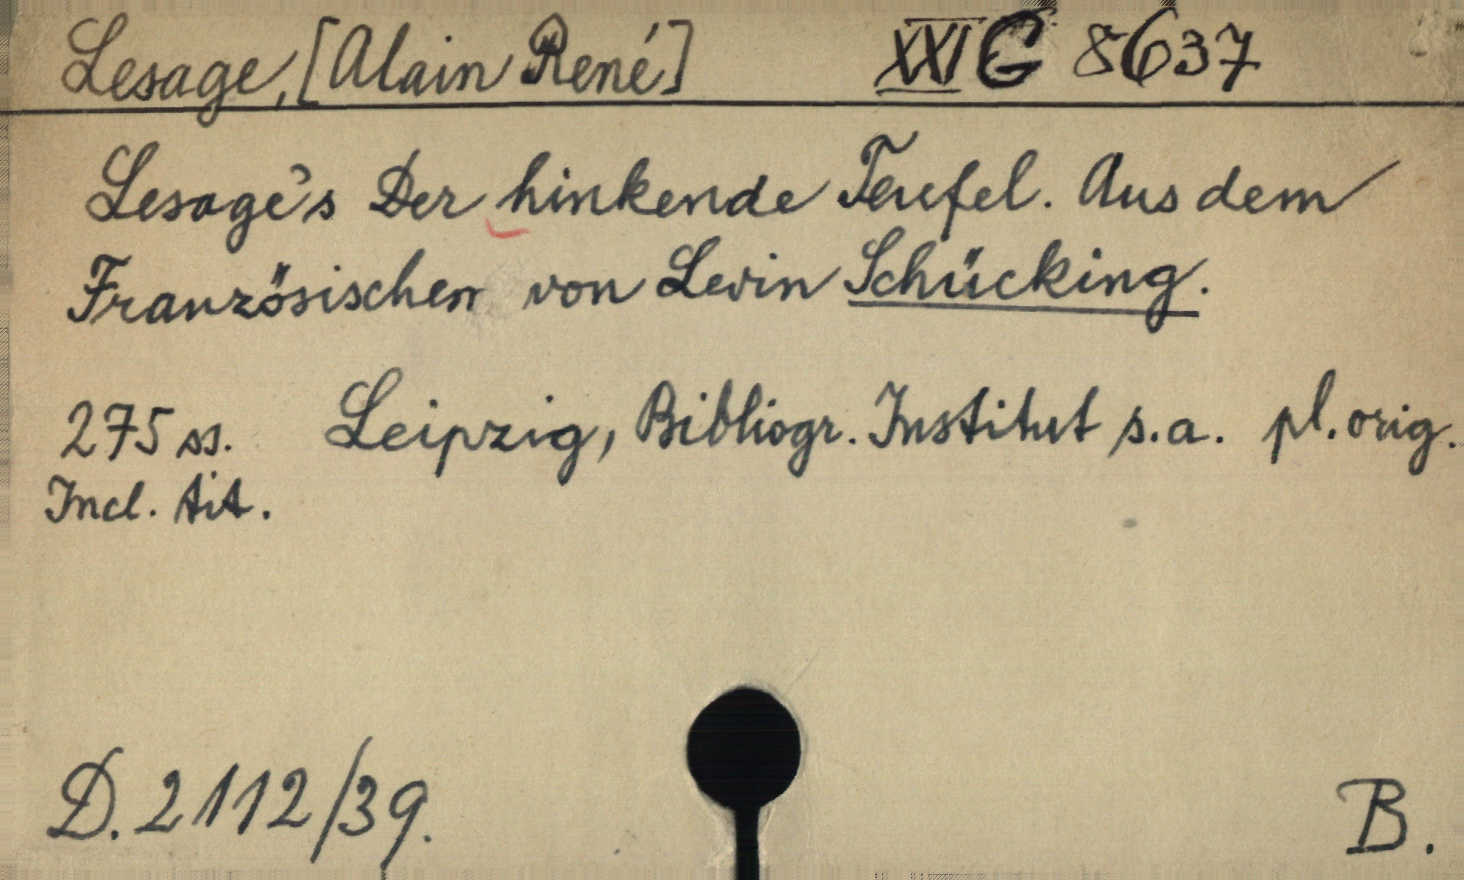 Lesage, [Alain René] XXI G 8637
Lesage's Der hinkende Teufel. Aus dem
Französischen von Levin Schücking.
275 ss. Leipzig, Bibliogr. Institut s.a. pl. orig.
Incl. tit.
D. 2112/39. B.